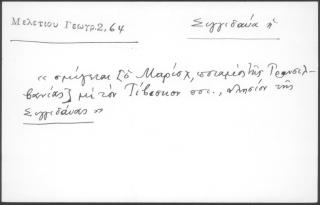 Μελετίου Γεωγρ. 2, 64
Σιγγιδαύα ἡ
« σμίγεται [ὁ Μαρίσχ, ποταμὸς τῆς Τρανσιλ-
βανίας] μὲ τὸν Τίβισκον ποτ., πλησίον τῆς
Σιγγιδάυας »